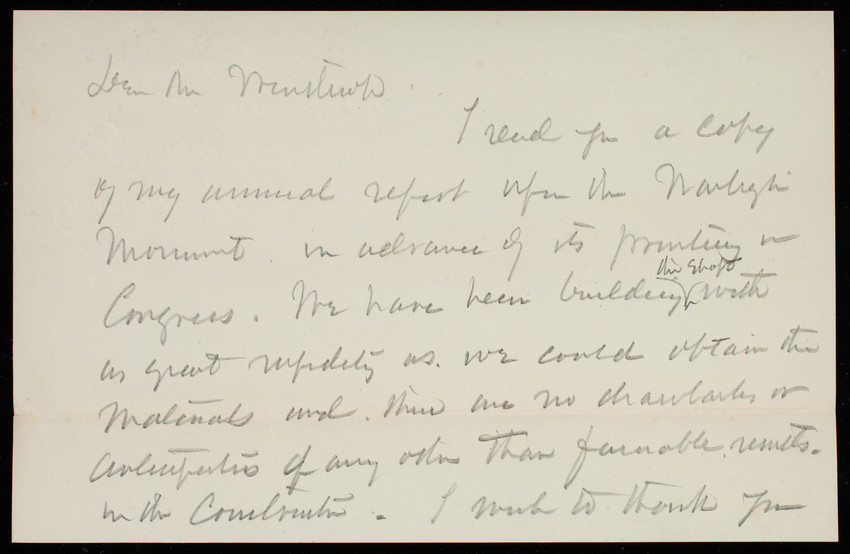 Dear Mr Winthrop.
I send you a copy
of my annual report upon the Washington
Monument in advance of its printing in
Congress. We have been building the shaft with
as great rapidity as we could obtain the
Materials and there are no drawbacks or
anticipation of any other than favorable results
in the Construction. I wish to thank you